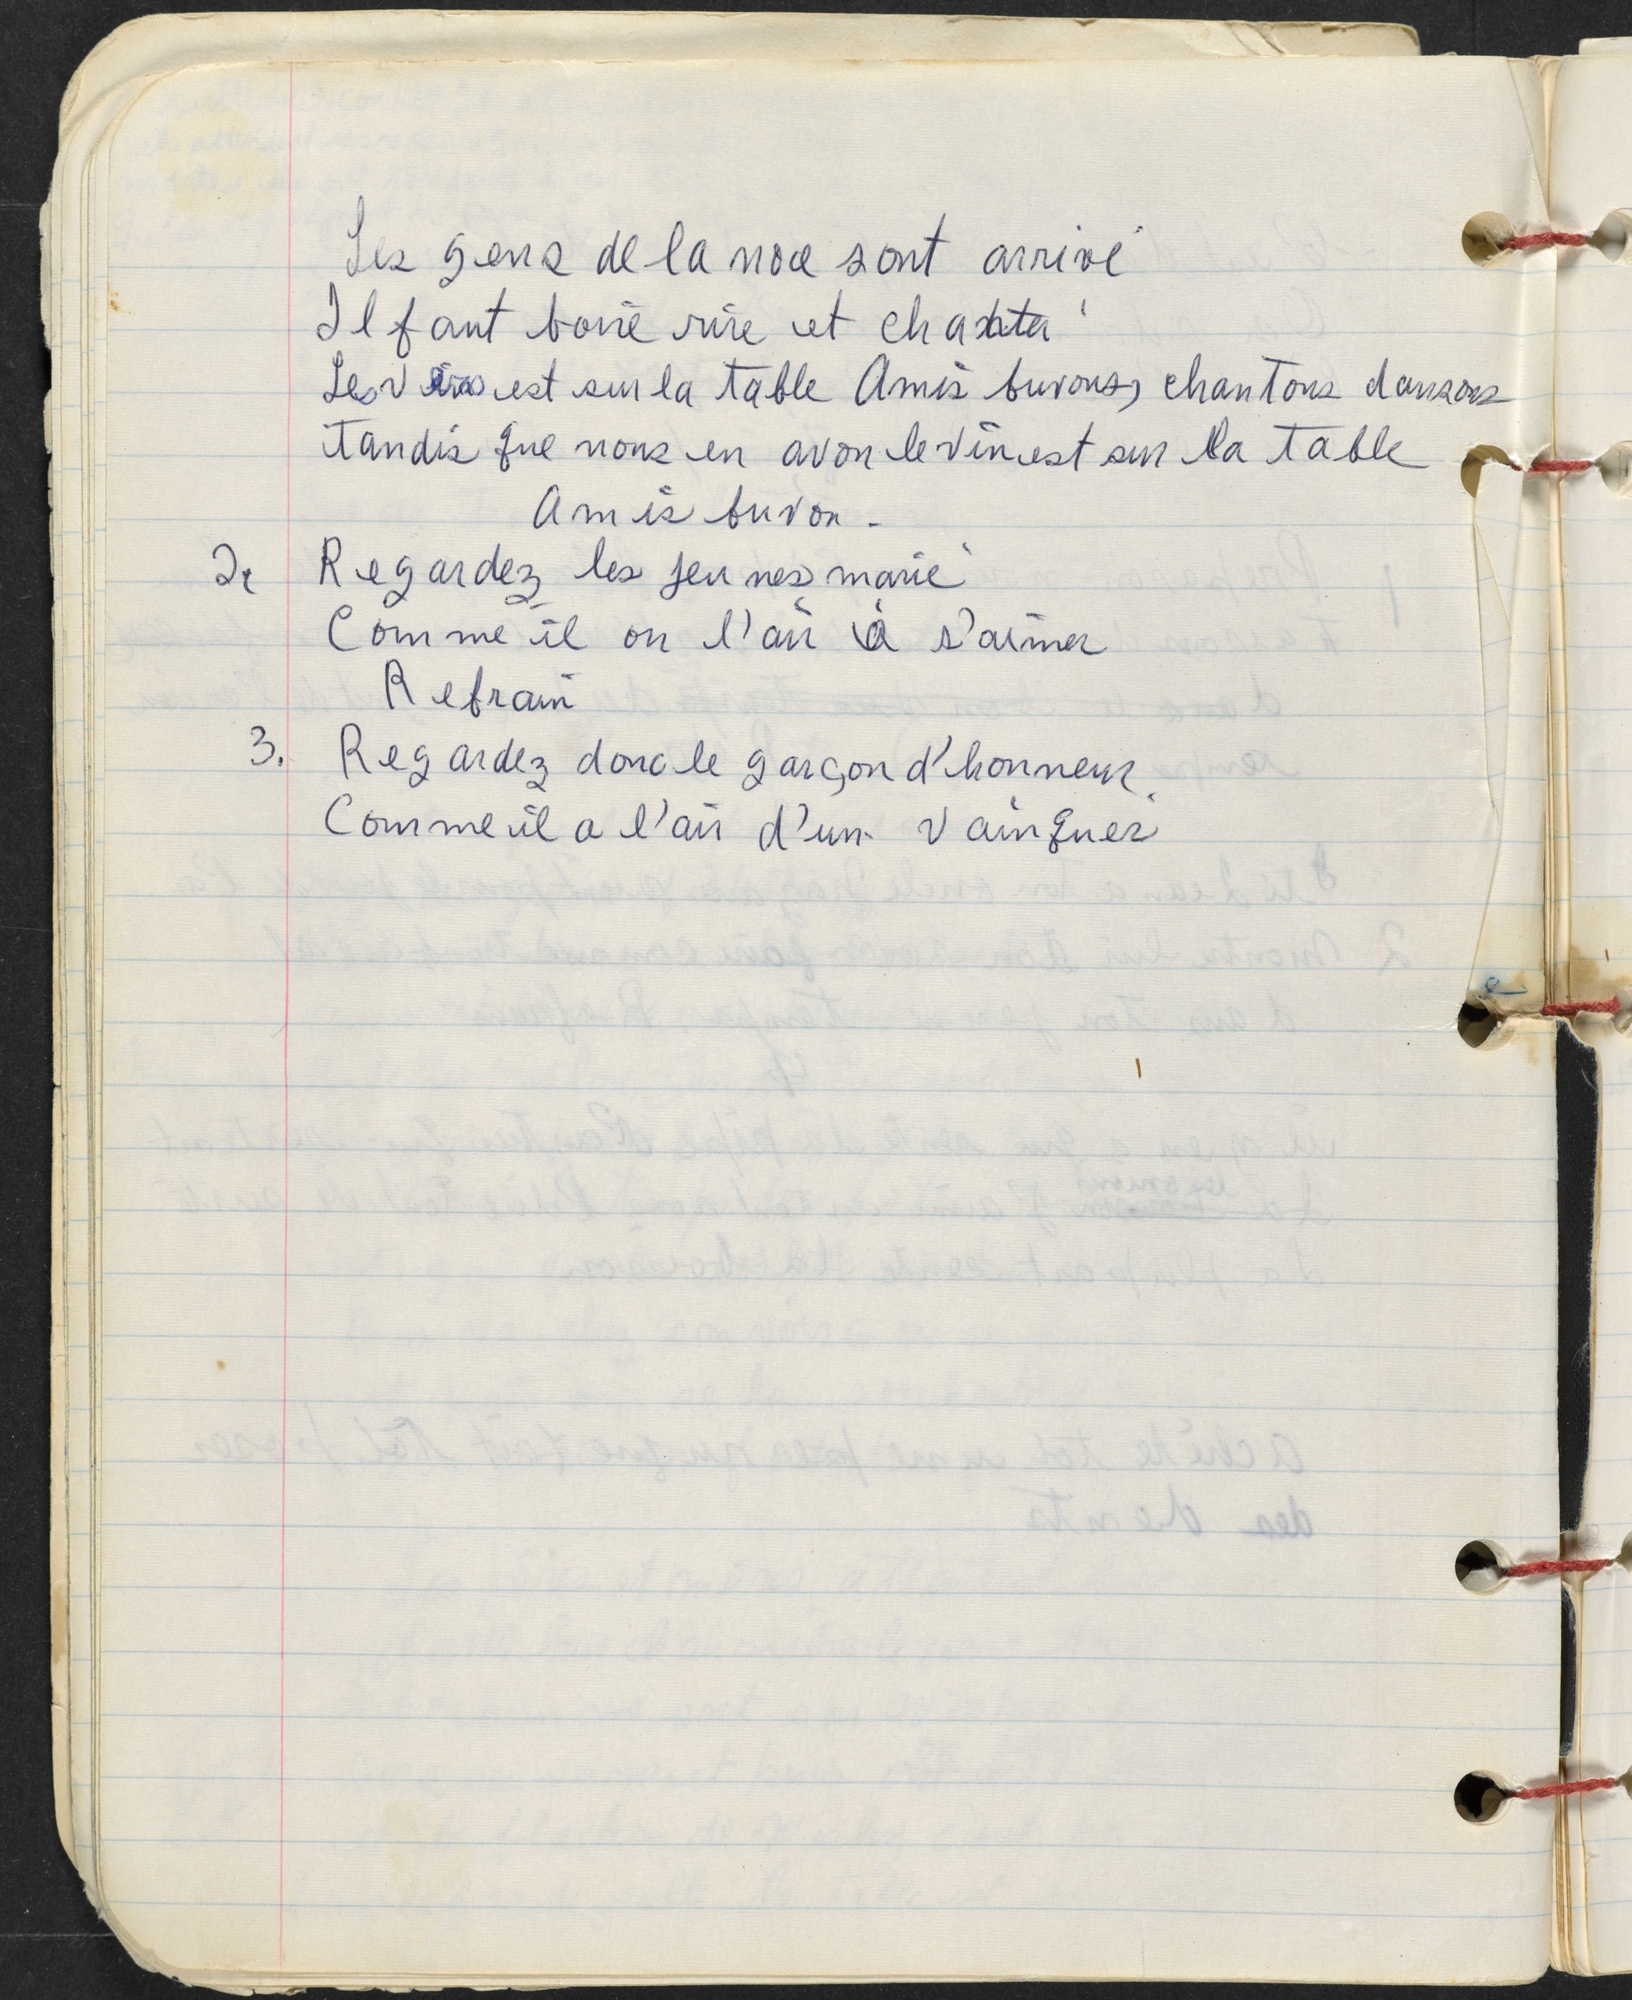 Les gens de la noce sont arrivé
Il faut boire rire et chanter
Le vin est sur la table Amis buvons, chantons dansons
Tandis que nous en avon le vin est sur la table
Amis buvon.
2. Regardez les jeunes marié
Comme il on l'air à s'aimer
Refrain
3. Regardez donc le garçon d'honneur
Comme il a l'air d'un vainquer